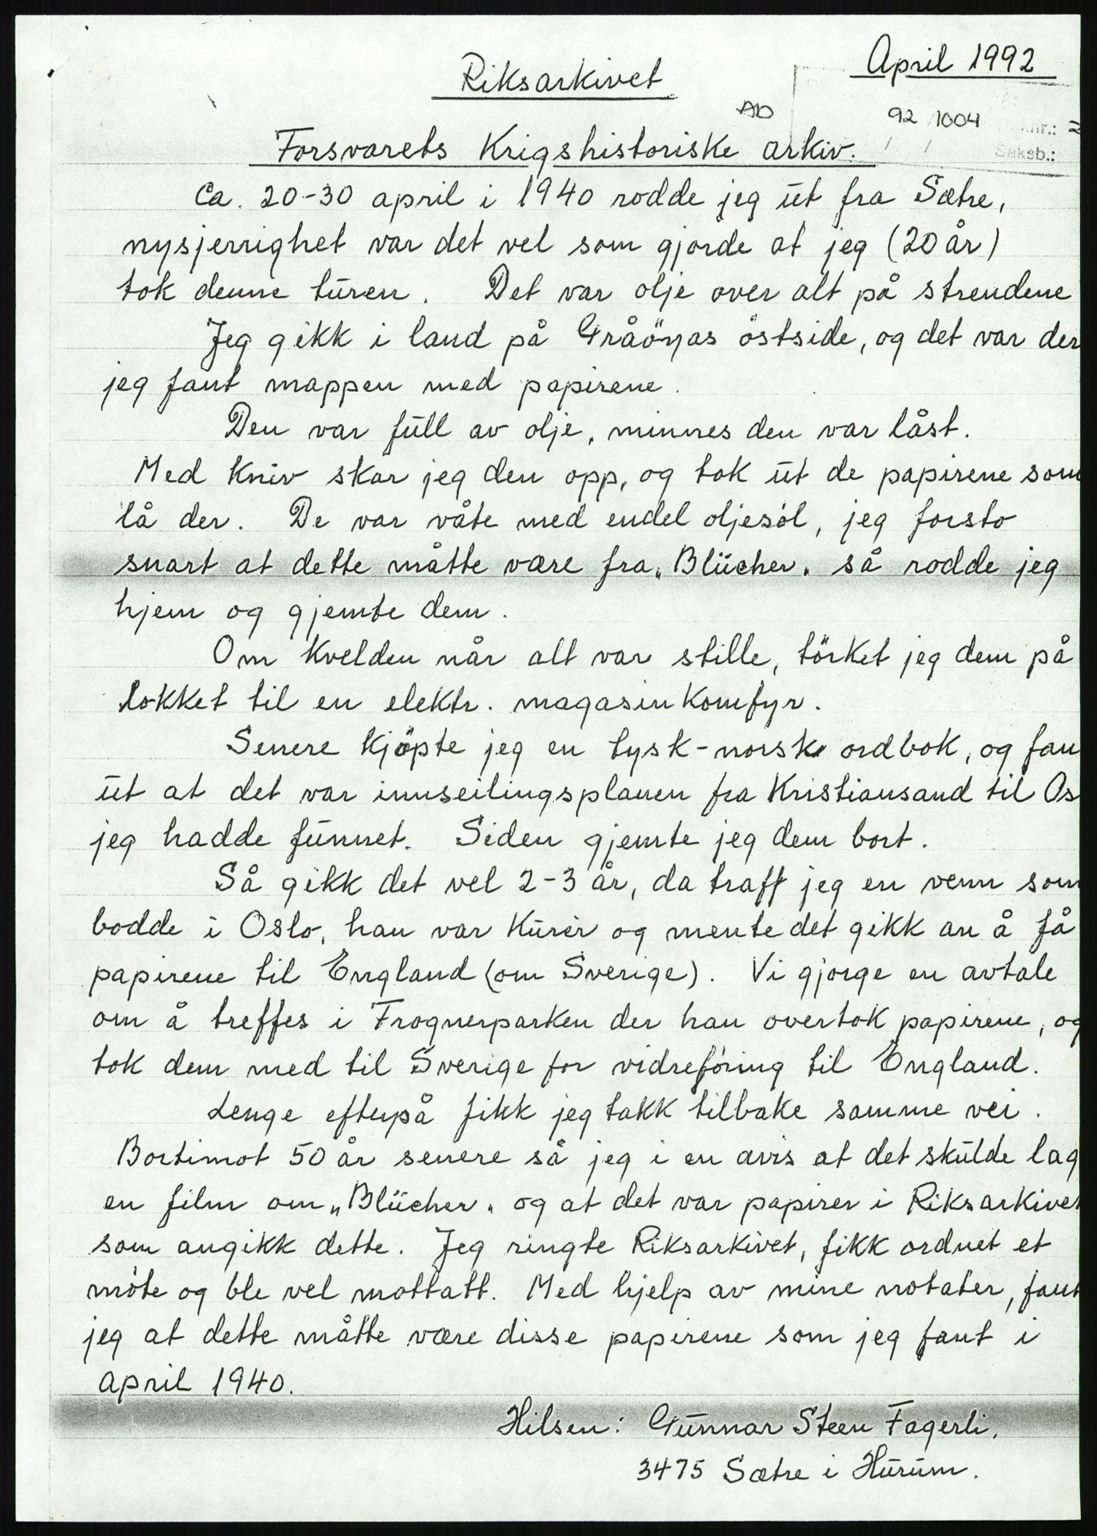 April 1992
Riksarkivet
AD
92 1004
Saksb.:
Forsvarets Krigshistoriske arkiv.
Ca. 20-30 april i 1940 rodde jeg ut fra Sætre,
nysjerrighet var det vel som gjorde at jeg (20 år)
tok denne turen. Det var olje over alt på strendene
Jeg gikk i land på Gråöyas östside, og det var der
jeg fant mappen med papirene.
Den var full av olje, minnes den var låst.
Med kniv skar jeg den opp, og tok ut de papirene som
lå der. De var våte med endel oljesöl, jeg forsto
snart at dette måtte være fra „Blücher" så rodde jeg
hjem og gjemte dem.
Om kvelden når alt var stille, törket jeg dem på
lokket til en elektr. magasinkomfyr.
Senere kjöpte jeg en tysk-norsk ordbok, og fan
ut at det var innseilingsplanen fra Kristiansand til Os
jeg hadde funnet. Siden gjemte jeg dem bort.
Så gikk det vel 2-3 år, da traff jeg en venn som
bodde i Oslo, han var Kurér og mente det gikk an å få
papirene til England (om Sverige). Vi gjorge en avtale
om å treffes i Frognerparken der han overtok papirene, og
tok dem med til Sverige for vidreföring til England.
Lenge efterpå fikk jeg takk tilbake samme vei.
Bortimot 50 år senere så jeg i en avis at det skulde lag
en film om „Blücher" og at det var papirer i Riksarkivet
som angikk dette. Jeg ringte Riksarkivet, fikk ordnet et
möte og ble vel mottatt. Med hjelp av mine notater, fant
jeg at dette måtte være disse papirene som jeg fant i
april 1940.
Hilsen: Gunnar Steen Fagerli.
3475 Sætre i Hurum.